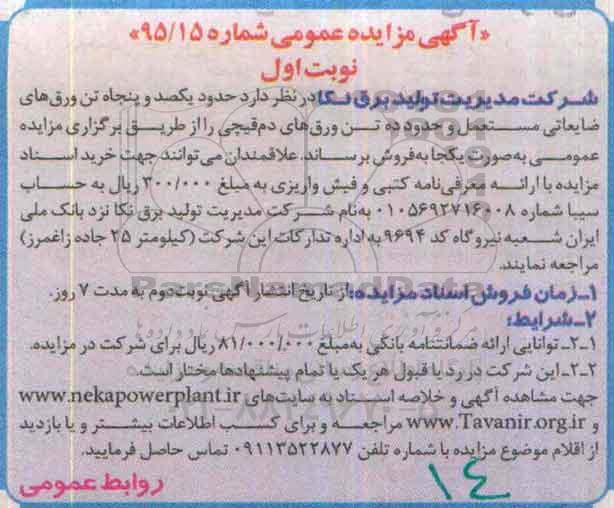 «آگهی مزایده عمومی شماره ۹۵/۱۵»
نوبت اول
شرکت مدیریت تولید برق نکا در نظر دارد حدود یکصد و پنجاه تن ورق‌های
ضایعاتی مستعمل و حدود ده تن ورق‌های دم‌قیچی را از طریق برگزاری مزایده
عمومی به‌صورت یکجا به‌فروش برساند. علاقمندان می‌توانند جهت خرید اسناد
مزایده با ارائه معرفی‌نامه کتبی و فیش واریزی به مبلغ ۳۰۰/۰۰۰ ریال به حساب
سیبا شماره ۰۱۰۵۶۹۲۷۱۶۰۰۸ به‌نام شرکت مدیریت تولید برق نکا نزد بانک ملی
ایران شعبه نیروگاه کد ۹۶۹۴ به اداره تدارکات این شرکت (کیلومتر ۲۵ جاده زاغمرز)
مراجعه نمایند.
۱ـ زمان فروش اسناد مزایده: از تاریخ انتشار آگهی نوبت دوم به مدت ۷ روز.
۲ـ شرایط:
۲ـ۱ـ توانایی ارائه ضمانتنامه بانکی به‌مبلغ ۸۱/۰۰۰/۰۰۰ ریال برای شرکت در مزایده.
۲ـ۲ـ این شرکت در رد یا قبول هر یک یا تمام پیشنهادها مختار است.
جهت مشاهده آگهی و خلاصه اسناد به سایت‌های www.nekapowerplant.ir
و www.Tavanir.org.ir مراجعه و برای کسب اطلاعات بیشتر و یا بازدید
از اقلام موضوع مزایده با شماره تلفن ۰۹۱۱۳۵۲۲۸۷۷ تماس حاصل فرمایید.
روابط عمومی
۱۴
ParsNamadData